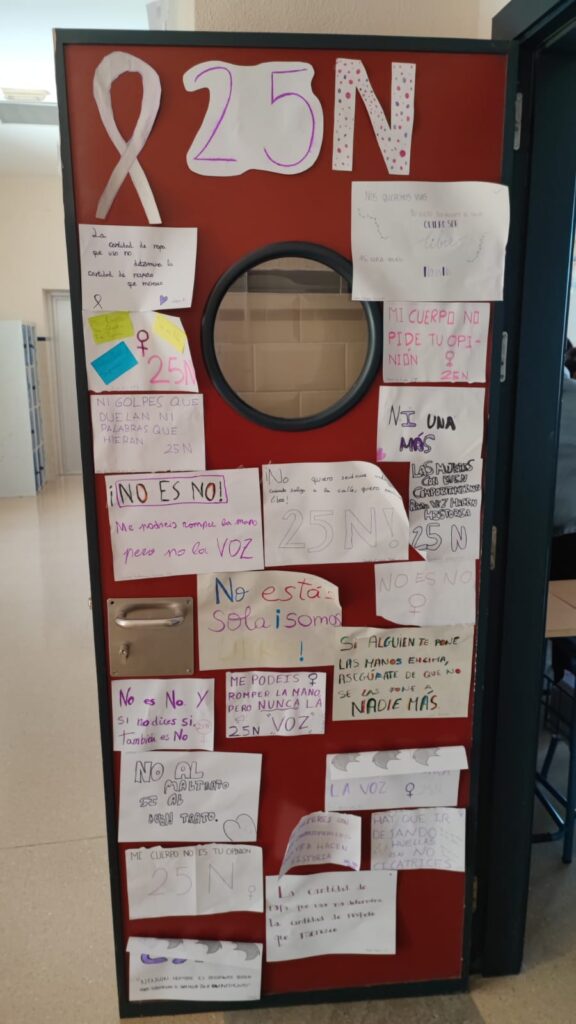 25N
NOS QUEREMOS VIVAS
QUIERO SER
libre
La
cantidad de ropa
que uso no
determina la
cantidad de respeto
que merezco
MI CUERPO NO
PIDE TU OPI-
NIÓN ♀
25N
♀
25N
NI GOLPES QUE
DUELAN NI
PALABRAS QUE
HIERAN
25N
NI UNA
MÁS
LAS MUJERES
CON BUEN
COMPORTAMIENTO
RARA VEZ HACEN
HISTORIA
25 N
¡NO ES NO!
Me podreis romper la mano
pero no la VOZ
¡No quiero sentirme
cuando salgo a la calle, quiero
libre!
25N!
NO ES NO
♀
No está
sola ¡somos
!
SI ALGUIEN TE PONE
LAS MANOS ENCIMA,
ASEGÚRATE DE QUE NO
SE LAS PONE A
NADIE MÁS
No es No Y
si no dices si,
también es No
ME PODEIS ♀
ROMPER LA MANO,
PERO NUNCA LA
25N "VOZ"
NO AL
MALTRATO
SI AL
BUEN TRATO.
LA VOZ ♀ 25N
HISTORIA
HAY QUE IR
DEJANDO
HUELLAS
NO
CICATRICES
MI CUERPO NO ES TU OPINION
25 N ♀
La cantidad de
ropa que uso no determina
La cantidad de respeto
que merezco